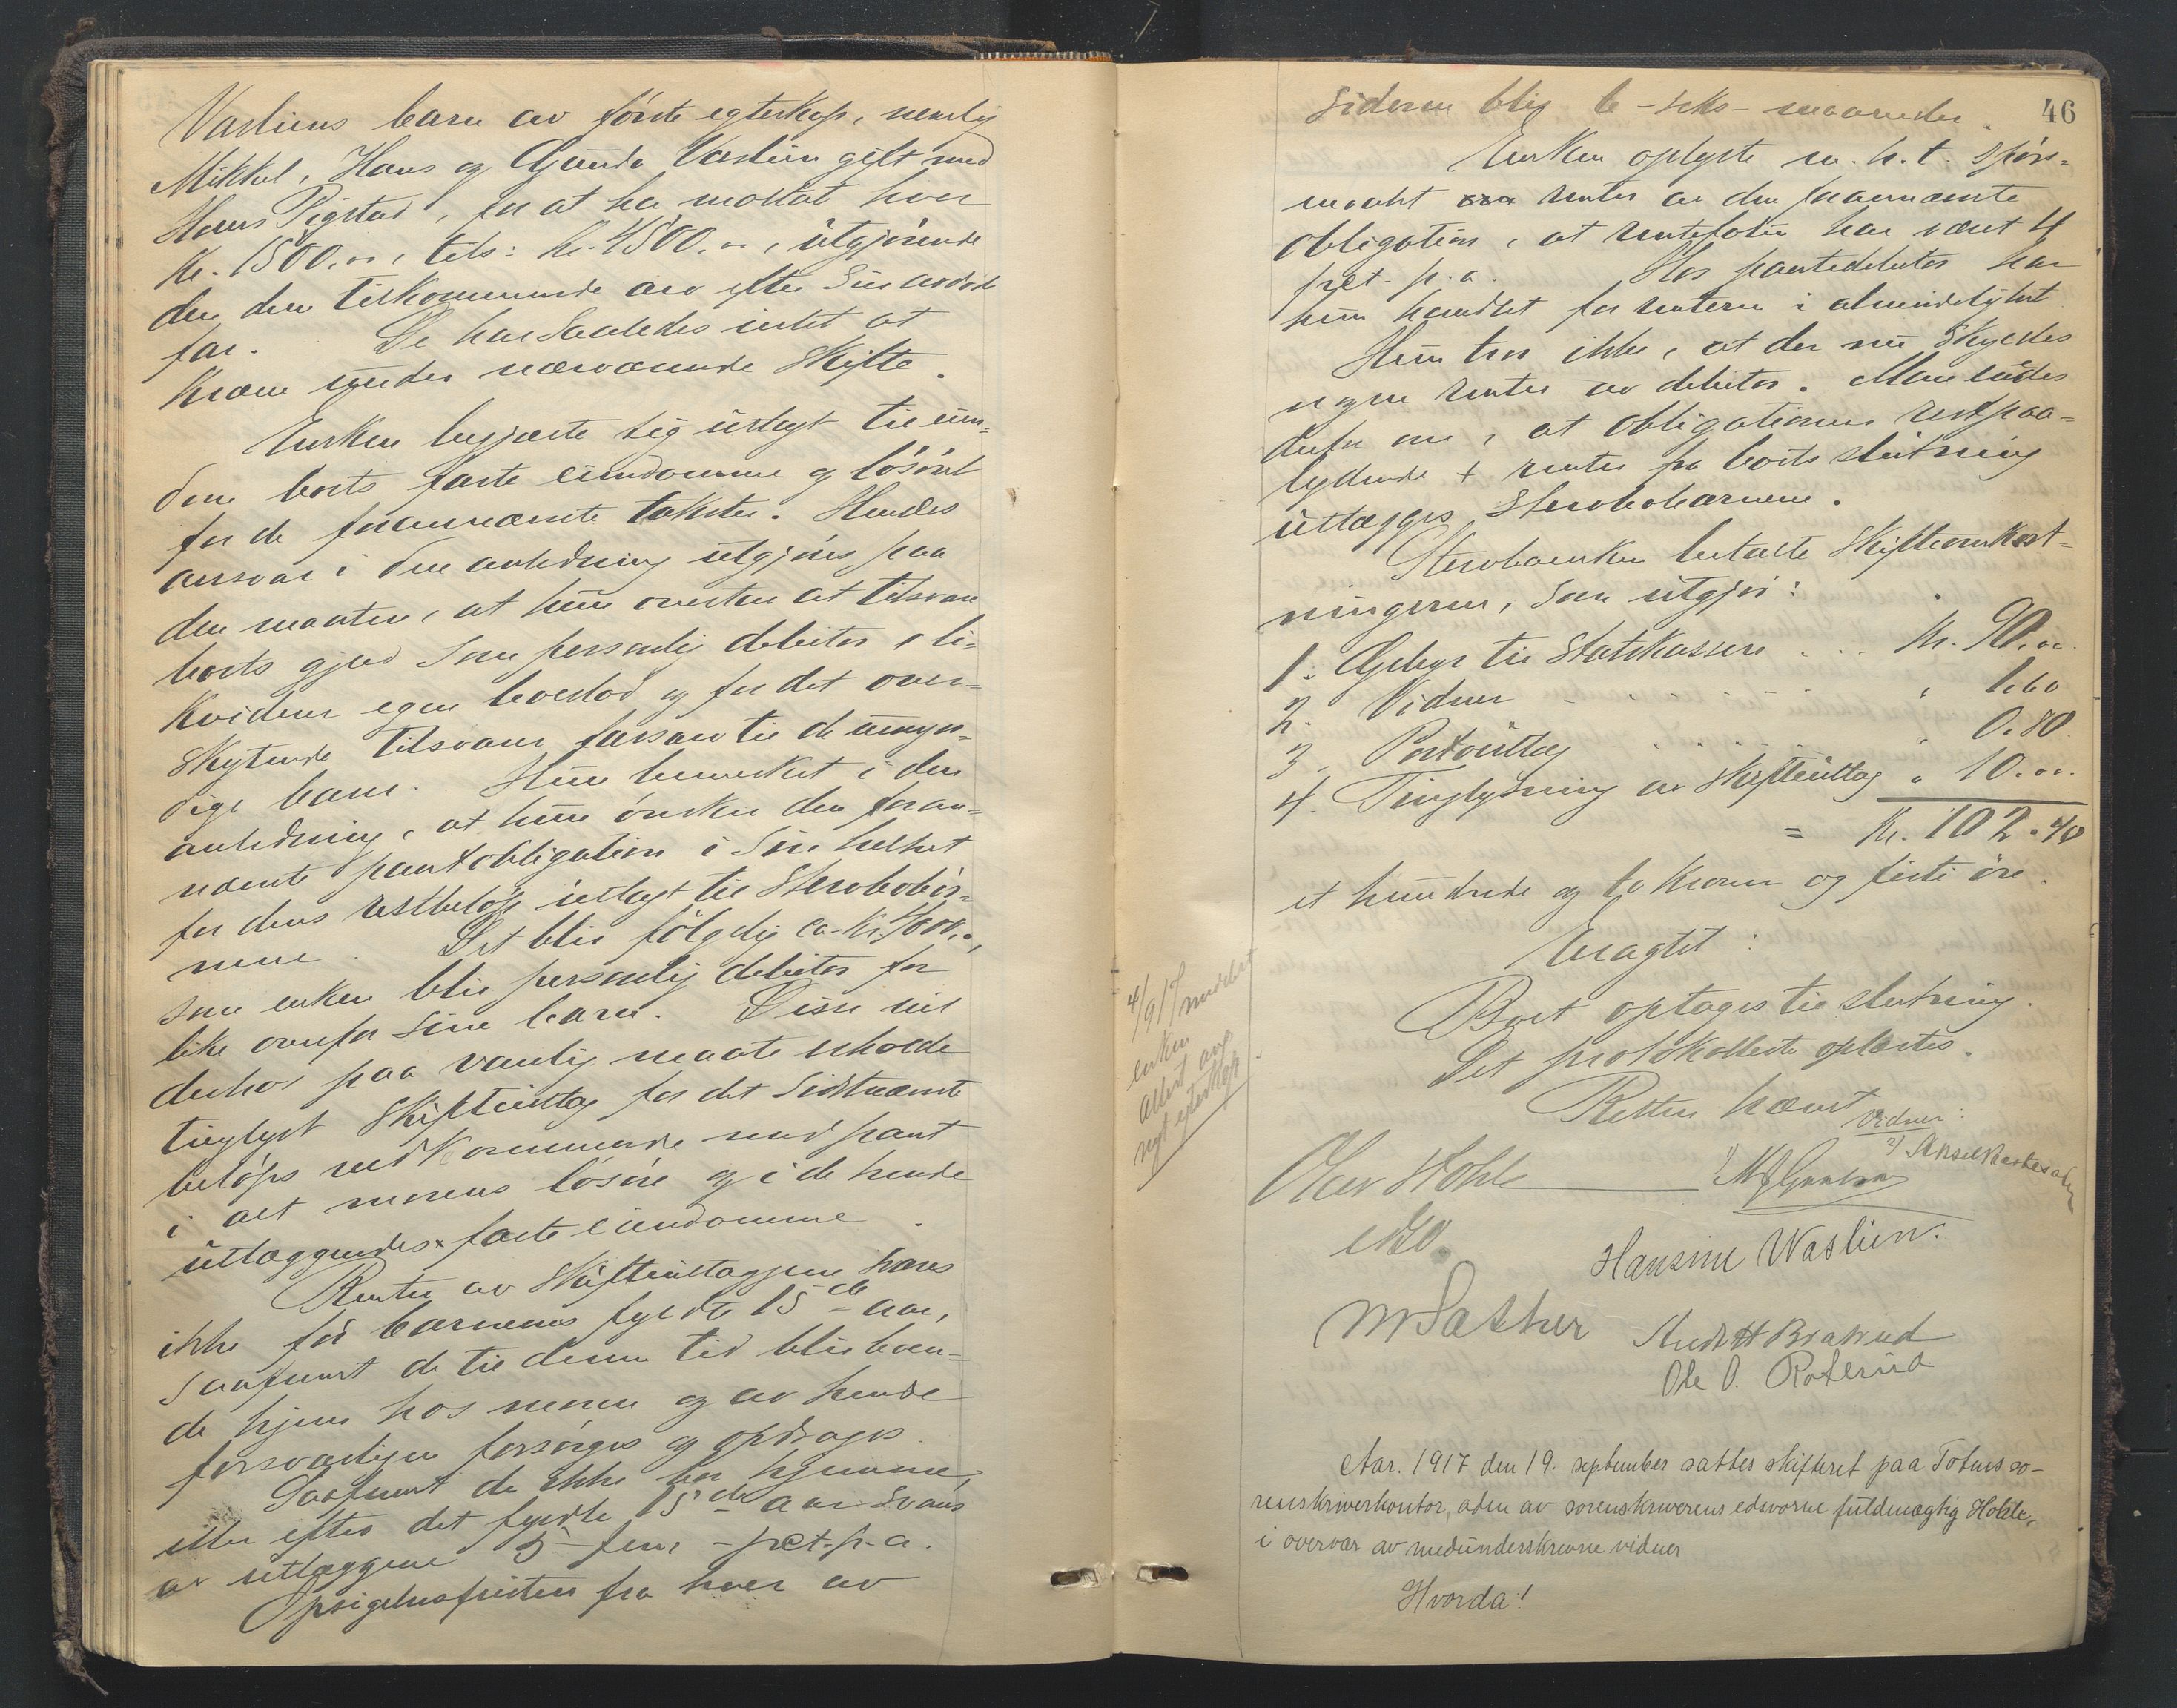 Vasliens barn av første egteskap, nemlig
Mikkel, Hans og Gunda Vaslien gift med
Hans Sigstad, for at ha mottat hver
Kr. 1500.00, tils: kr. 4500.00, utgjørende
den dem tilkommende arv efter sin avdøde
far. De har saaledes intet at
kræve under nærværende skifte.
Enken begjærte sig utlagt til eien-
dom boets faste eiendomme og løsøret
for de forannævnte takster. Hendes
ansvar i den anledning utgjøres paa
den maaten, at hun overtar at tilsvare
boets gjeld som personlig debitor, li-
kviderer egen boeslod og for det over-
skytende tilsvarer farsarv til de umyn-
dige barn. Hun bemerket i den
anledning, at hun ønsker den foran-
nævnte pantobligation i sin helhet
for dens restbeløp utlagt til stervbobør-
nene. Det blir følgelig ca. kr. 400.00,
som enken blir personlig debitor for
like overfor sine barn. Disse vil
derhos paa vanlig maate erholde
tinglyst skifteutlæg for det sidstnævnte
beløps vedkommende med pant
i alt morens løsøre og i de hende
utlæggendes faste eiendomme.
Renter av skifteutlæggene svares
ikke før barnenes fyldte 15de aar,
saafremt de til denne tid blir hven-
de hjem hos moren og av hende
forsvarligen forsørges og opdrages.
Saafremt de ikke bor hjemme,
eller efter det fyldte 15de aar svares
av utlæggene 5 - fem - pct. p.a.
Opsigelsesfristen fra hver av
46
siderne blir 6 - seks - maaneder.
Enken oplyste m.h.t. spørs-
maalet om renter av den forannævnte
obligation, at rentefoten har været 4
pct. p.a. Hos pantedebitor har
hun handlet for renterne i almindelighet.
Hun tror ikke, at der nu skyldes
nogen renter av debitor. Man enedes
derfor om, at obligationens restpaa-
lydende + renter fra boets slutning
utlægges stervbobarnene.
Stervboenken betalte skifteomkost-
ningerne, som utgjør:
1. Gebyr til Statskassen . . . Kr. 90.00.
2. Vidner . . . " 1.60
3. Portoutlæg . . . " 0.80.
4. Tinglysning av skifteutlæg " 10.00.
= Kr. 102.40
et hundrede og to kroner og firti øre.
Eragtet:
Boet optages til slutning.
Det protokollerte oplæstes.
Retten hævet
Vidner:
Olav Hohle
Hansine Waslien.
M Sæther
Ole O. Roterud
4/9 17 meddelt
enken
attest ang.
nyt egteskap.
Aar. 1917 den 19. september sattes skifteret paa Totens so-
renskriverkontor, adm. av sorenskriverens edsvorne fuldmægtig Hohle,
i overvær av medunderskrevne vidner
Hvorda!